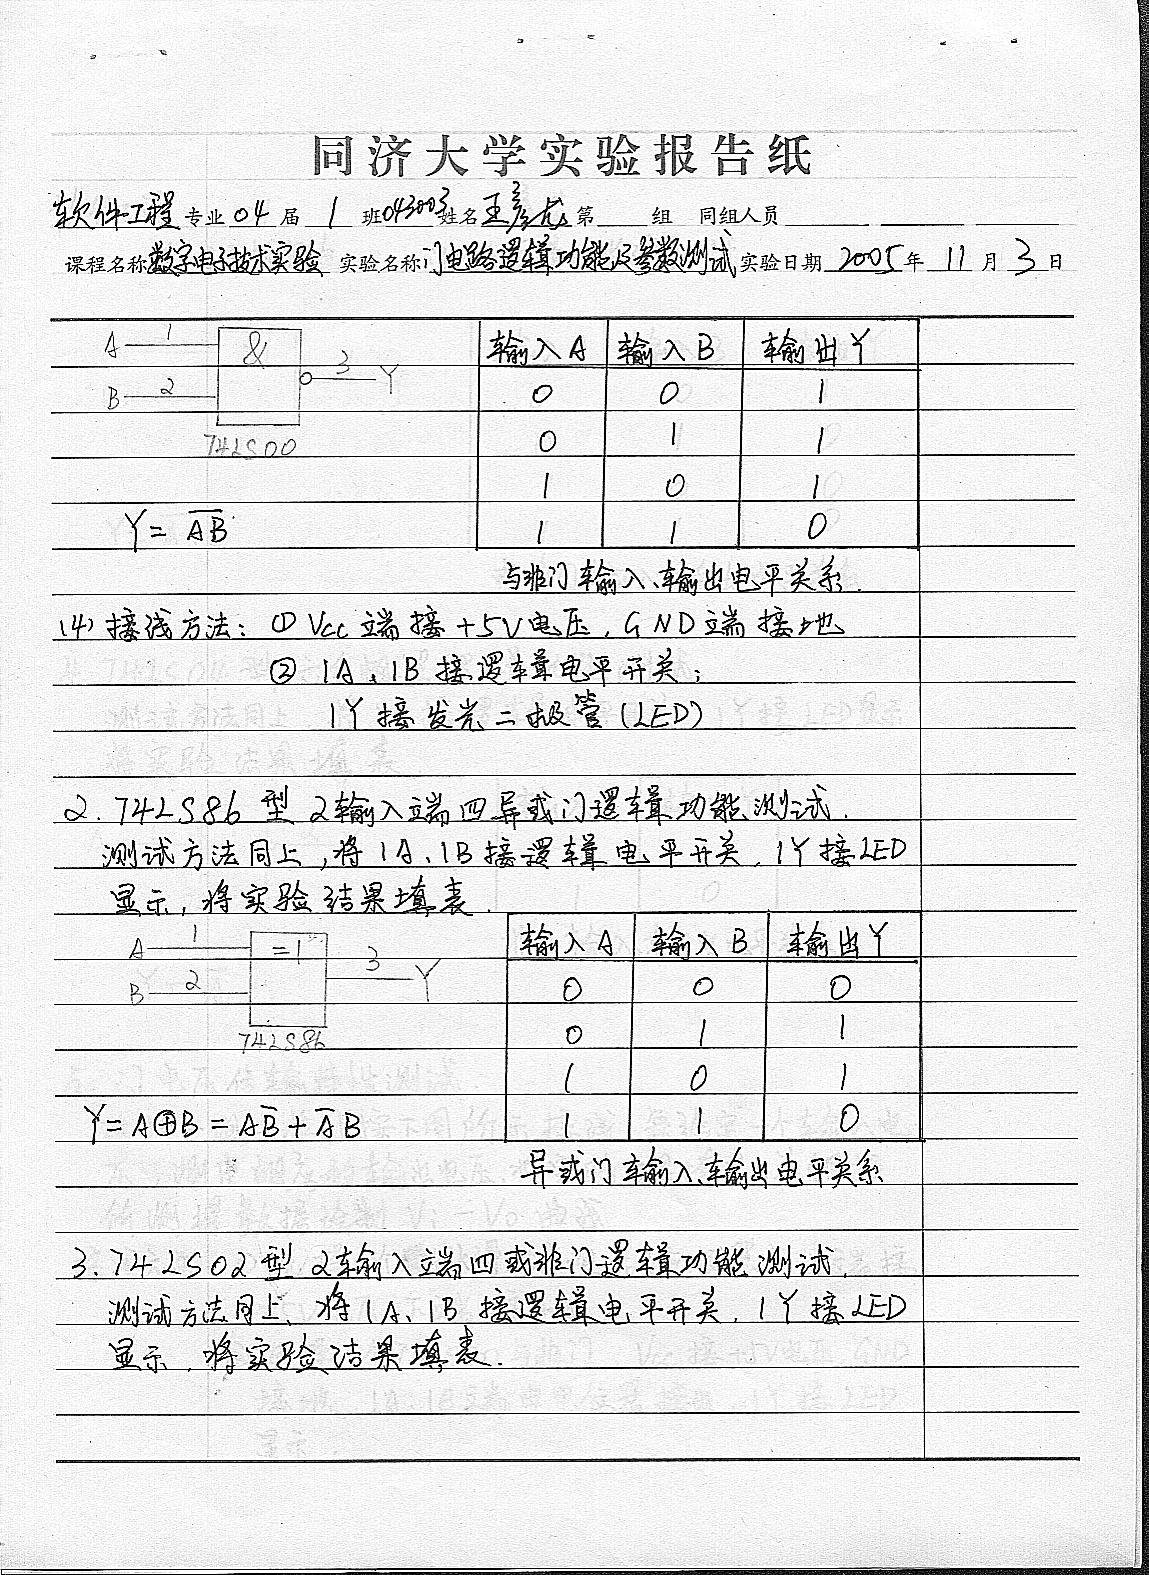 同济大学实验报告纸
软件工程专业04届 1 班043003姓名王彦龙第 组 同组人员
课程名称数字电子技术实验 实验名称门电路逻辑功能及参数测试实验日期 2005年 11月 3日
A 1 & 3 Y
B 2
74LS00
输入A 输入B 输出Y
0 0 1
0 1 1
1 0 1
1 1 0
Y = A̅B̅
与非门输入、输出电平关系.
(4) 接线方法: ① Vcc 端接 +5V电压, GND端接地
② 1A、1B 接逻辑电平开关;
1Y 接发光二极管(LED)
2.74LS86型 2输入端四异或门逻辑功能测试.
测试方法同上,将1A、1B接逻辑电平开关,1Y接LED
显示,将实验结果填表.
A 1 =1 3 Y
B 2
74LS86
输入A 输入B 输出Y
0 0 0
0 1 1
1 0 1
1 1 0
Y = A⊕B = AB̅ + A̅B
异或门输入、输出电平关系
3.74LS02型 2输入端四或非门逻辑功能测试.
测试方法同上、将1A、1B接逻辑电平开关,1Y接LED
显示,将实验结果填表.